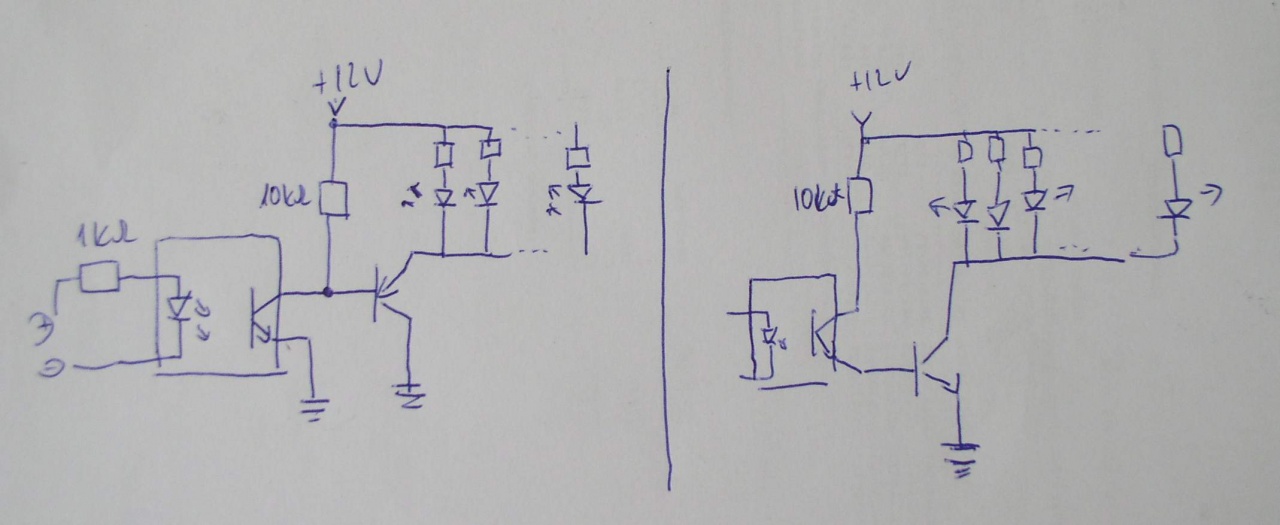 +12V
10kΩ
1kΩ
+12V
10kΩ